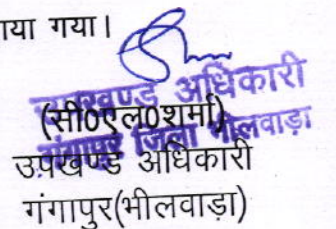 ाया गया।
उपखण्ड अधिकारी
गंगापुर जिला भीलवाड़ा
(सी0एल0शर्मा)
उपखण्ड अधिकारी
गंगापुर(भीलवाड़ा)